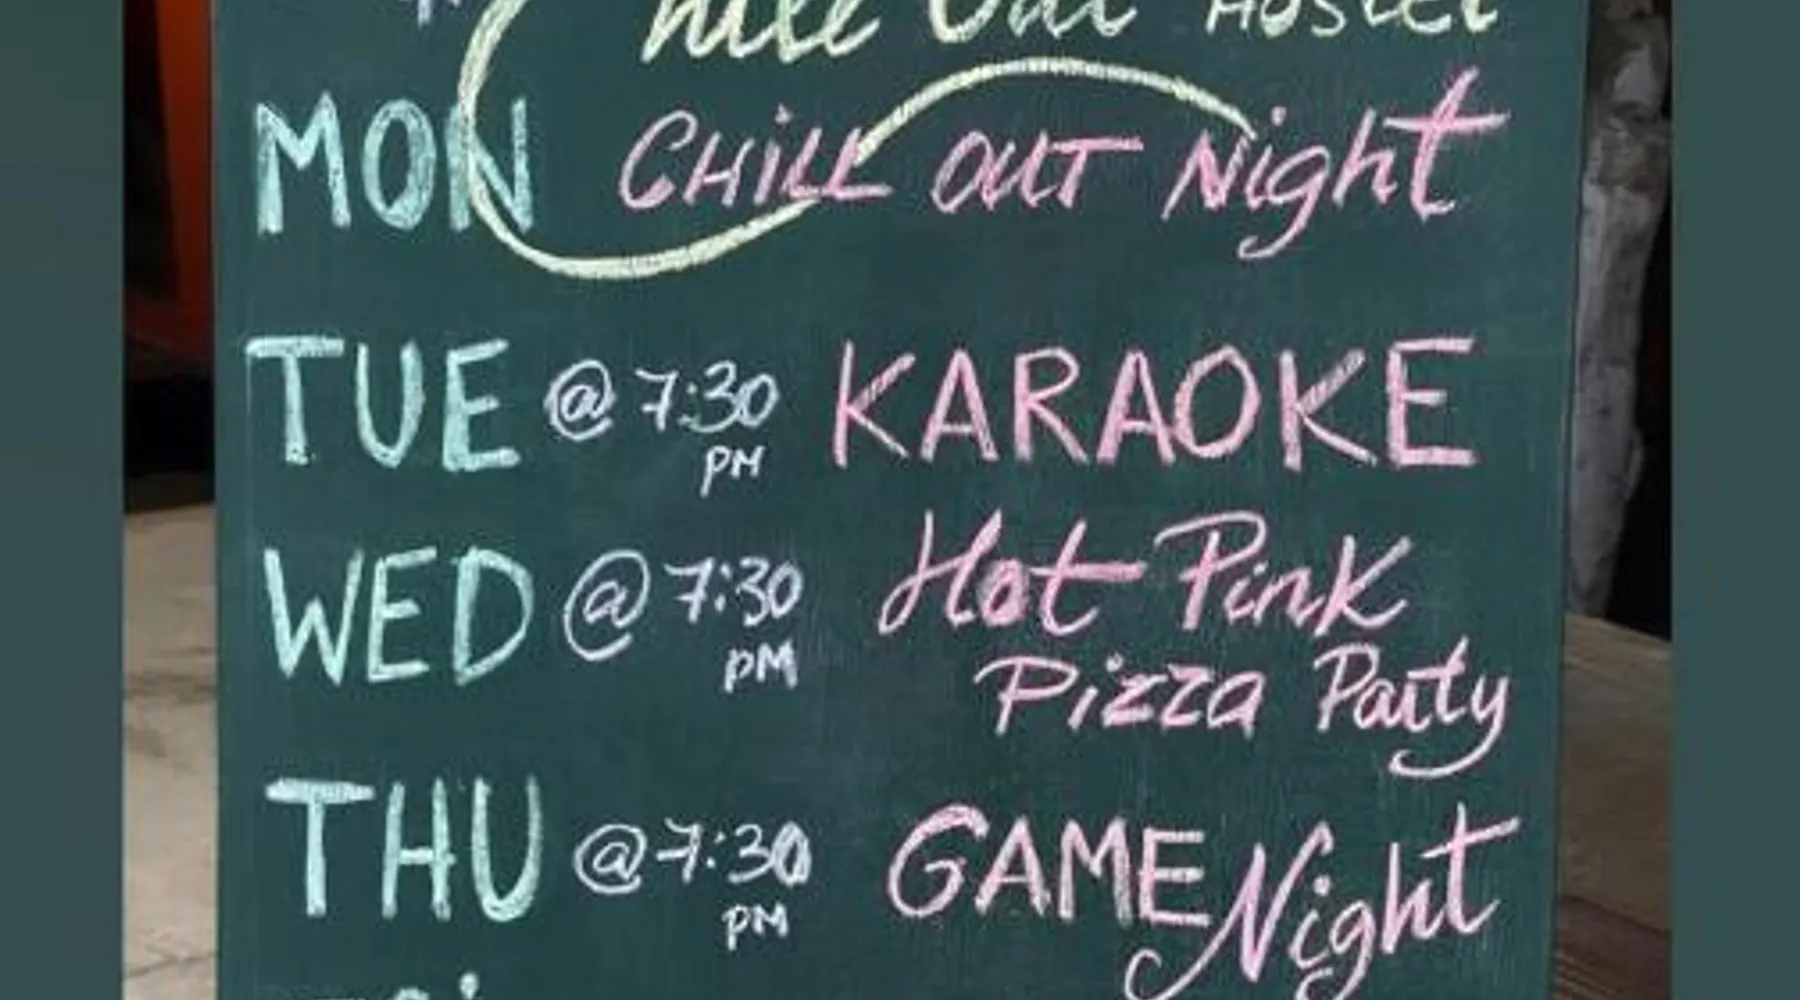 Chill Out HOSTEL
MON CHILL OUT Night
TUE @ 7:30 PM KARAOKE
WED @ 7:30 PM Hot Pink
Pizza Party
THU @ 7:30 PM GAME Night